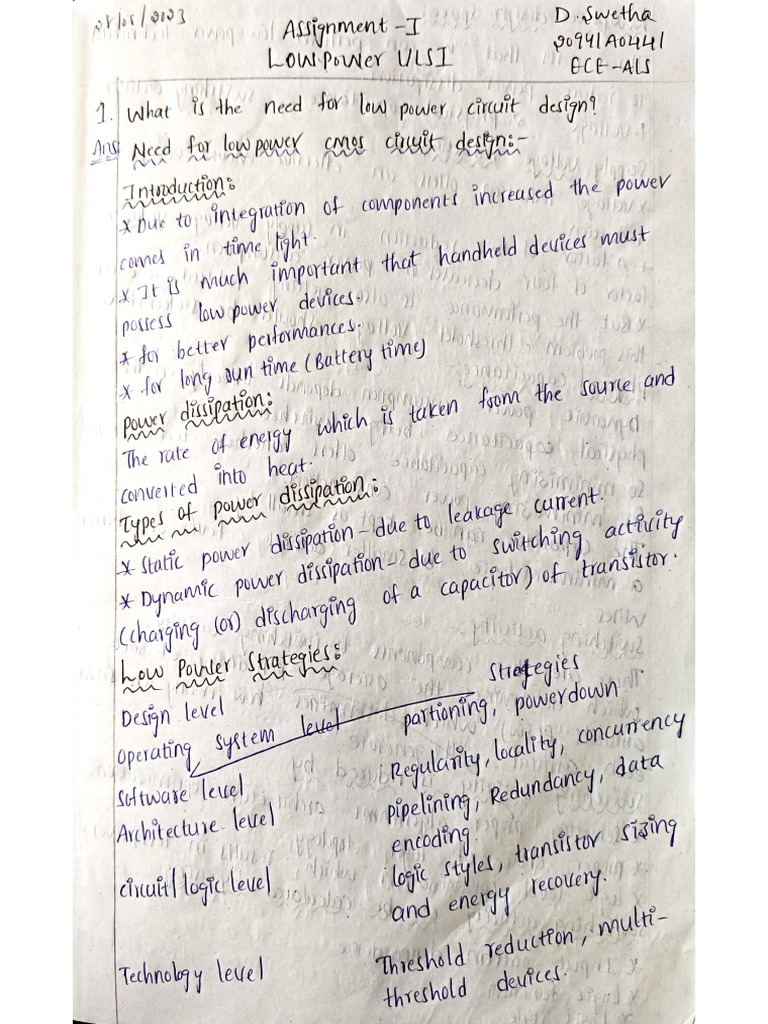 Assignment-I
Low Power VLSI
D. Swetha
ECE-A15
1. What is the need for low power circuit design?
Ans Need for low power cmos circuit design:-
Introduction:
* Due to integration of components increased the power
comes in time light.
* It is much important that handheld devices must
possess low power devices.
* for better performances.
* for long run time (Battery time)
Power dissipation:
The rate of energy which is taken from the source and
converted into heat.
Types of power dissipation:
* Static power dissipation - due to leakage current.
* Dynamic power dissipation - due to switching activity
(charging (or) discharging of a capacitor) of transistor.
Low Power Strategies:
Design level Strategies
Operating system level partioning, powerdown
Software level Regularity, locality, concurrency
Architecture level pipelining, Redundancy, data
encoding.
circuit/logic level logic styles, transistor sizing
and energy recovery.
Technology level Threshold reduction, multi-
threshold devices.